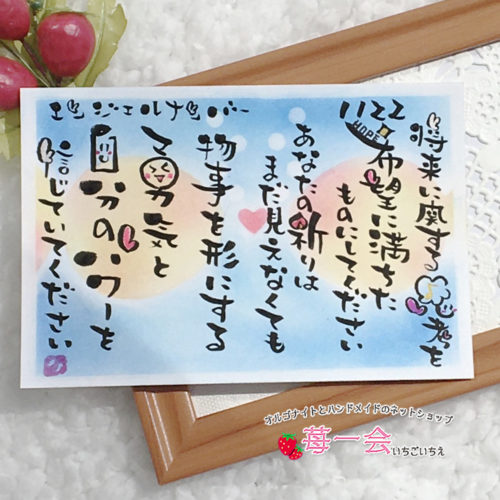 エンジェルナンバー 1122
将来に関する思考を
HOPE
希望に満ちた
ものにしてください
あなたの祈りは
まだ見えなくても
物事を形にする
勇気と
自分のパワーを
信じていてください
オルゴナイトとハンドメイドのネットショップ
苺一会 いちごいちえ